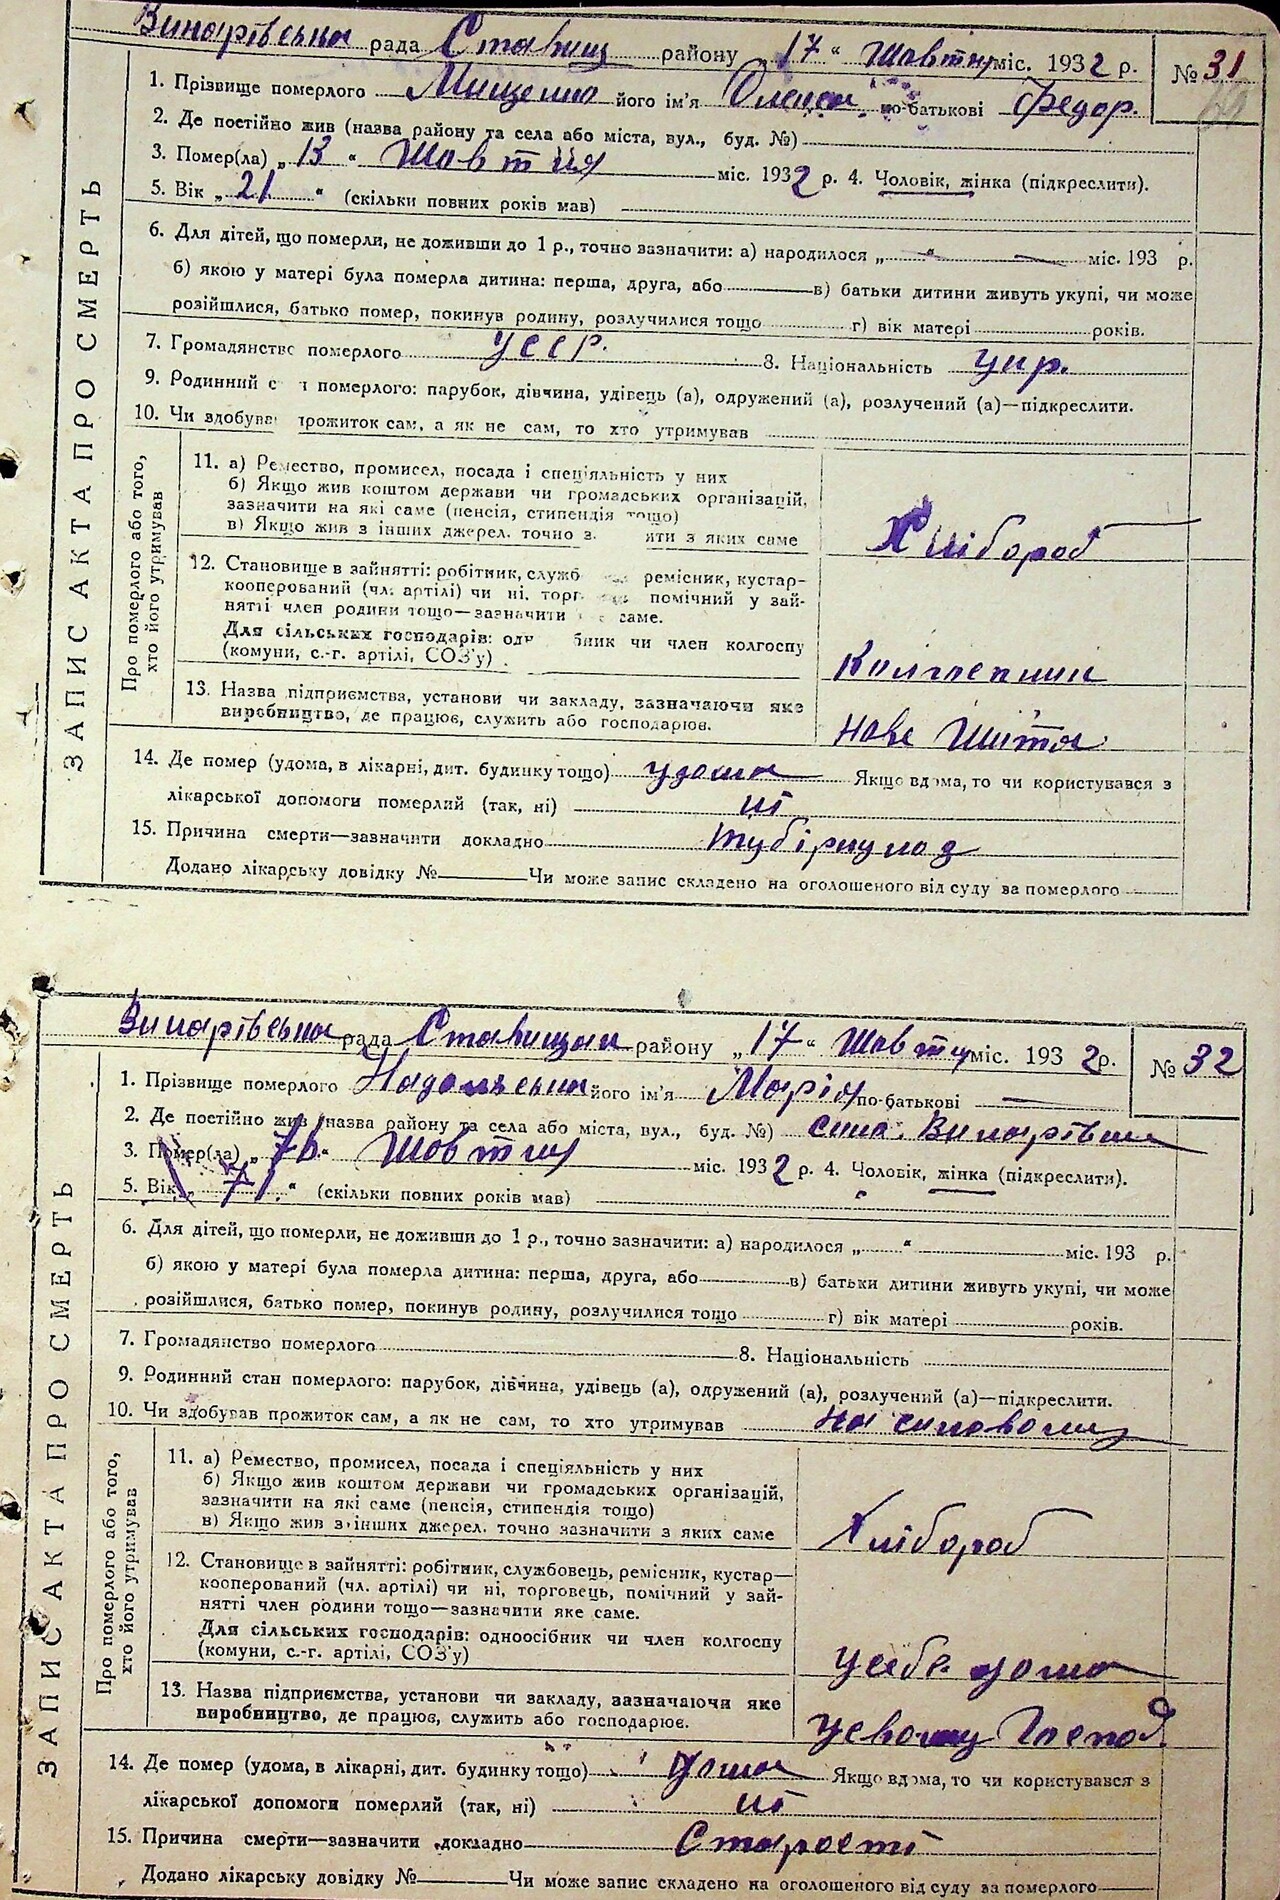 Винарівська рада Ставищ району 17 “ Жовтня міс. 1932 р. № 31
1. Прізвище померлого Мищенко його ім'я Олекса по-батькові Федор.
2. Де постійно жив (назва району та села або міста, вул., буд. №)
3. Помер(ла) „ 13 “ Жовтня міс. 1932 р. 4. Чоловік, жінка (підкреслити).
5. Вік „ 21 “ (скільки повних років мав)
6. Для дітей, що померли, не доживши до 1 р., точно зазначити: а) народилося „ — “ — міс. 193 р.
б) якою у матері була померла дитина: перша, друга, або в) батьки дитини живуть укупі, чи може
розійшлися, батько помер, покинув родину, розлучилися тощо г) вік матері років.
7. Громадянство померлого УССР. 8. Національність укр.
9. Родинний с н померлого: парубок, дівчина, удівець (а), одружений (а), розлучений (а)—підкреслити.
10. Чи здобував прожиток сам, а як не сам, то хто утримував
ЗАПИС АКТА ПРО СМЕРТЬ
Про померлого або того, хто його утримував
11. а) Ремество, промисел, посада і спеціяльність у них
б) Якщо жив коштом держави чи громадських організацій,
зазначити на які саме (пенсія, стипендія тощо)
в) Якщо жив з інших джерел. точно з яти з яких саме
Хлібороб
12. Становище в зайнятті: робітник, служб ремісник, кустар-
кооперований (чл. артілі) чи ні, торг помічний у зай-
нятті член родини тощо—зазначити саме.
Для сільських господарів: одн бник чи член колгоспу
(комуни, с.-г. артілі, СОЗ'у)
Колгоспник
13. Назва підприємства, установи чи закладу, зазначаючи яке
виробництво, де працює, служить або господарює.
Нове Життя
14. Де помер (удома, в лікарні, дит. будинку тощо) удома Якщо вдома, то чи користувався з
лікарської допомоги померлий (так, ні) ні
15. Причина смерти—зазначити докладно
Додано лікарську довідку № Чи може запис складено на оголошеного від суду за померлого
Винарівська рада Ставищан району „ 17 “ Жовтня міс. 1932 р. № 32
1. Прізвище померлого Надольська його ім'я Марія по-батькові —
2. Де постійно жив (назва району та села або міста, вул., буд. №) села Винарівки
3. Помер(ла) „ 16 “ Жовтня міс. 1932 р. 4. Чоловік, жінка (підкреслити).
5. Вік „ 71 “ (скільки повних років мав)
6. Для дітей, що померли, не доживши до 1 р., точно зазначити: а) народилося „ “ міс. 193 р.
б) якою у матері була померла дитина: перша, друга, або в) батьки дитини живуть укупі, чи може
розійшлися, батько помер, покинув родину, розлучилися тощо г) вік матері років.
7. Громадянство померлого 8. Національність
9. Родинний стан померлого: парубок, дівчина, удівець (а), одружений (а), розлучений (а)—підкреслити.
10. Чи здобував прожиток сам, а як не сам, то хто утримував на
ЗАПИС АКТА ПРО СМЕРТЬ
Про померлого або того, хто його утримував
11. а) Ремество, промисел, посада і спеціяльність у них
б) Якщо жив коштом держави чи громадських організацій,
зазначити на які саме (пенсія, стипендія тощо)
в) Якщо жив з інших джерел. точно зазначити з яких саме
Хлібороб
12. Становище в зайнятті: робітник, службовець, ремісник, кустар—
кооперований (чл. артілі) чи ні, торговець, помічний у зай-
нятті член родини тощо—зазначити яке саме.
Для сільських господарів: одноосібник чи член колгоспу
(комуни, с.-г. артілі, СОЗ'у)
усебе дома
13. Назва підприємства, установи чи закладу, зазначаючи яке
виробництво, де працює, служить або господарює.
Господ.
14. Де помер (удома, в лікарні, дит. будинку тощо) удома Якщо вдома, то чи користувався з
лікарської допомоги померлий (так, ні) ні
15. Причина смерти—зазначити докладно Старості
Додано лікарську довідку № Чи може запис складено на оголошеного від суду за померлого